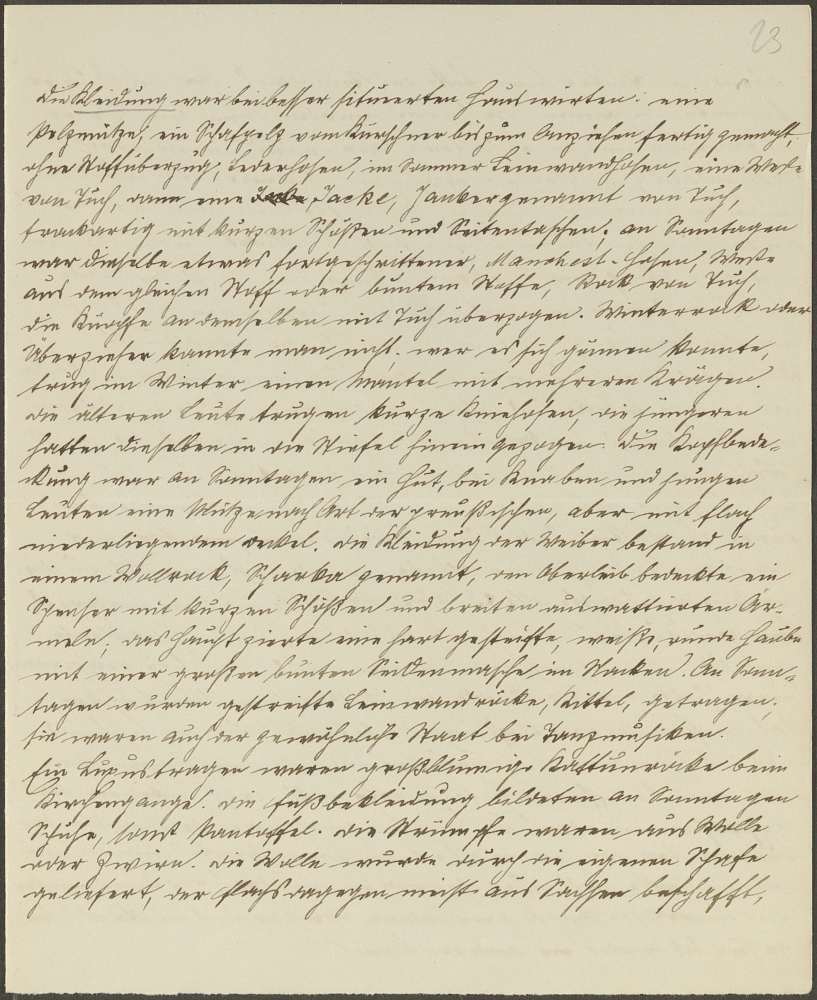 23
Die Kleidung war bei besser situierten Hauswirten: eine
Pelzmütze, ein Schafpelz vom Kürschner bis zum Anziehen fertig gemacht,
ohne Stoffüberzug, Lederhosen, im Sommer Leinwandhosen, eine Weste
von Tuch, dann eine Jacke, Janker genannt von Tuch,
frackartig mit kurzen Schößen und Seitentaschen; an Sonntagen
war dieselbe etwas fortgeschrittener, Manchest-Hosen, Weste
aus dem gleichen Stoff oder buntem Stoffe, Rock von Tuch,
die Knöpfe an demselben mit Tuch überzogen. Winterrock oder
Überzieher kannte man nicht; wer es sich gönnen konnte,
trug im Winter einen Mantel mit mehreren Krägen.
Die älteren Leute trugen kurze Kniehosen, die jüngeren
hatten dieselben in die Stiefel hineingezogen. Die Kopfbede-
ckung war an Sonntagen ein Hut, bei Knaben und jungen
Leuten eine Mütze nach Art der preußischen, aber mit flach
niederliegendem Deckel. Die Kleidung der Weiber bestand in
einem Wollrock, Scharka genannt, den Oberleib bedeckte ein
Spenser mit kurzen Schößen und breiten auswattierten Är-
meln; das Haupt zierte eine hart gesteifte, weiße, runde Haube
mit einer großen bunten Seidenmasche im Nacken. An Sonn-
tagen wurden gestreifte Leinwandröcke, Kittel, getragen;
sie waren auch der gewöhnliche Staat bei Tanzmusiken.
Ein Luxustragen waren großblumige Kattunröcke beim
Kirchengange. Die Fußbekleidung bildeten an Sonntagen
Schuhe, sonst Pantoffel. Die Strümpfe waren aus Wolle
oder Zwirn. Die Wolle wurde durch die eigenen Schafe
geliefert, der Flachs dagegen meist aus Sachsen beschafft,